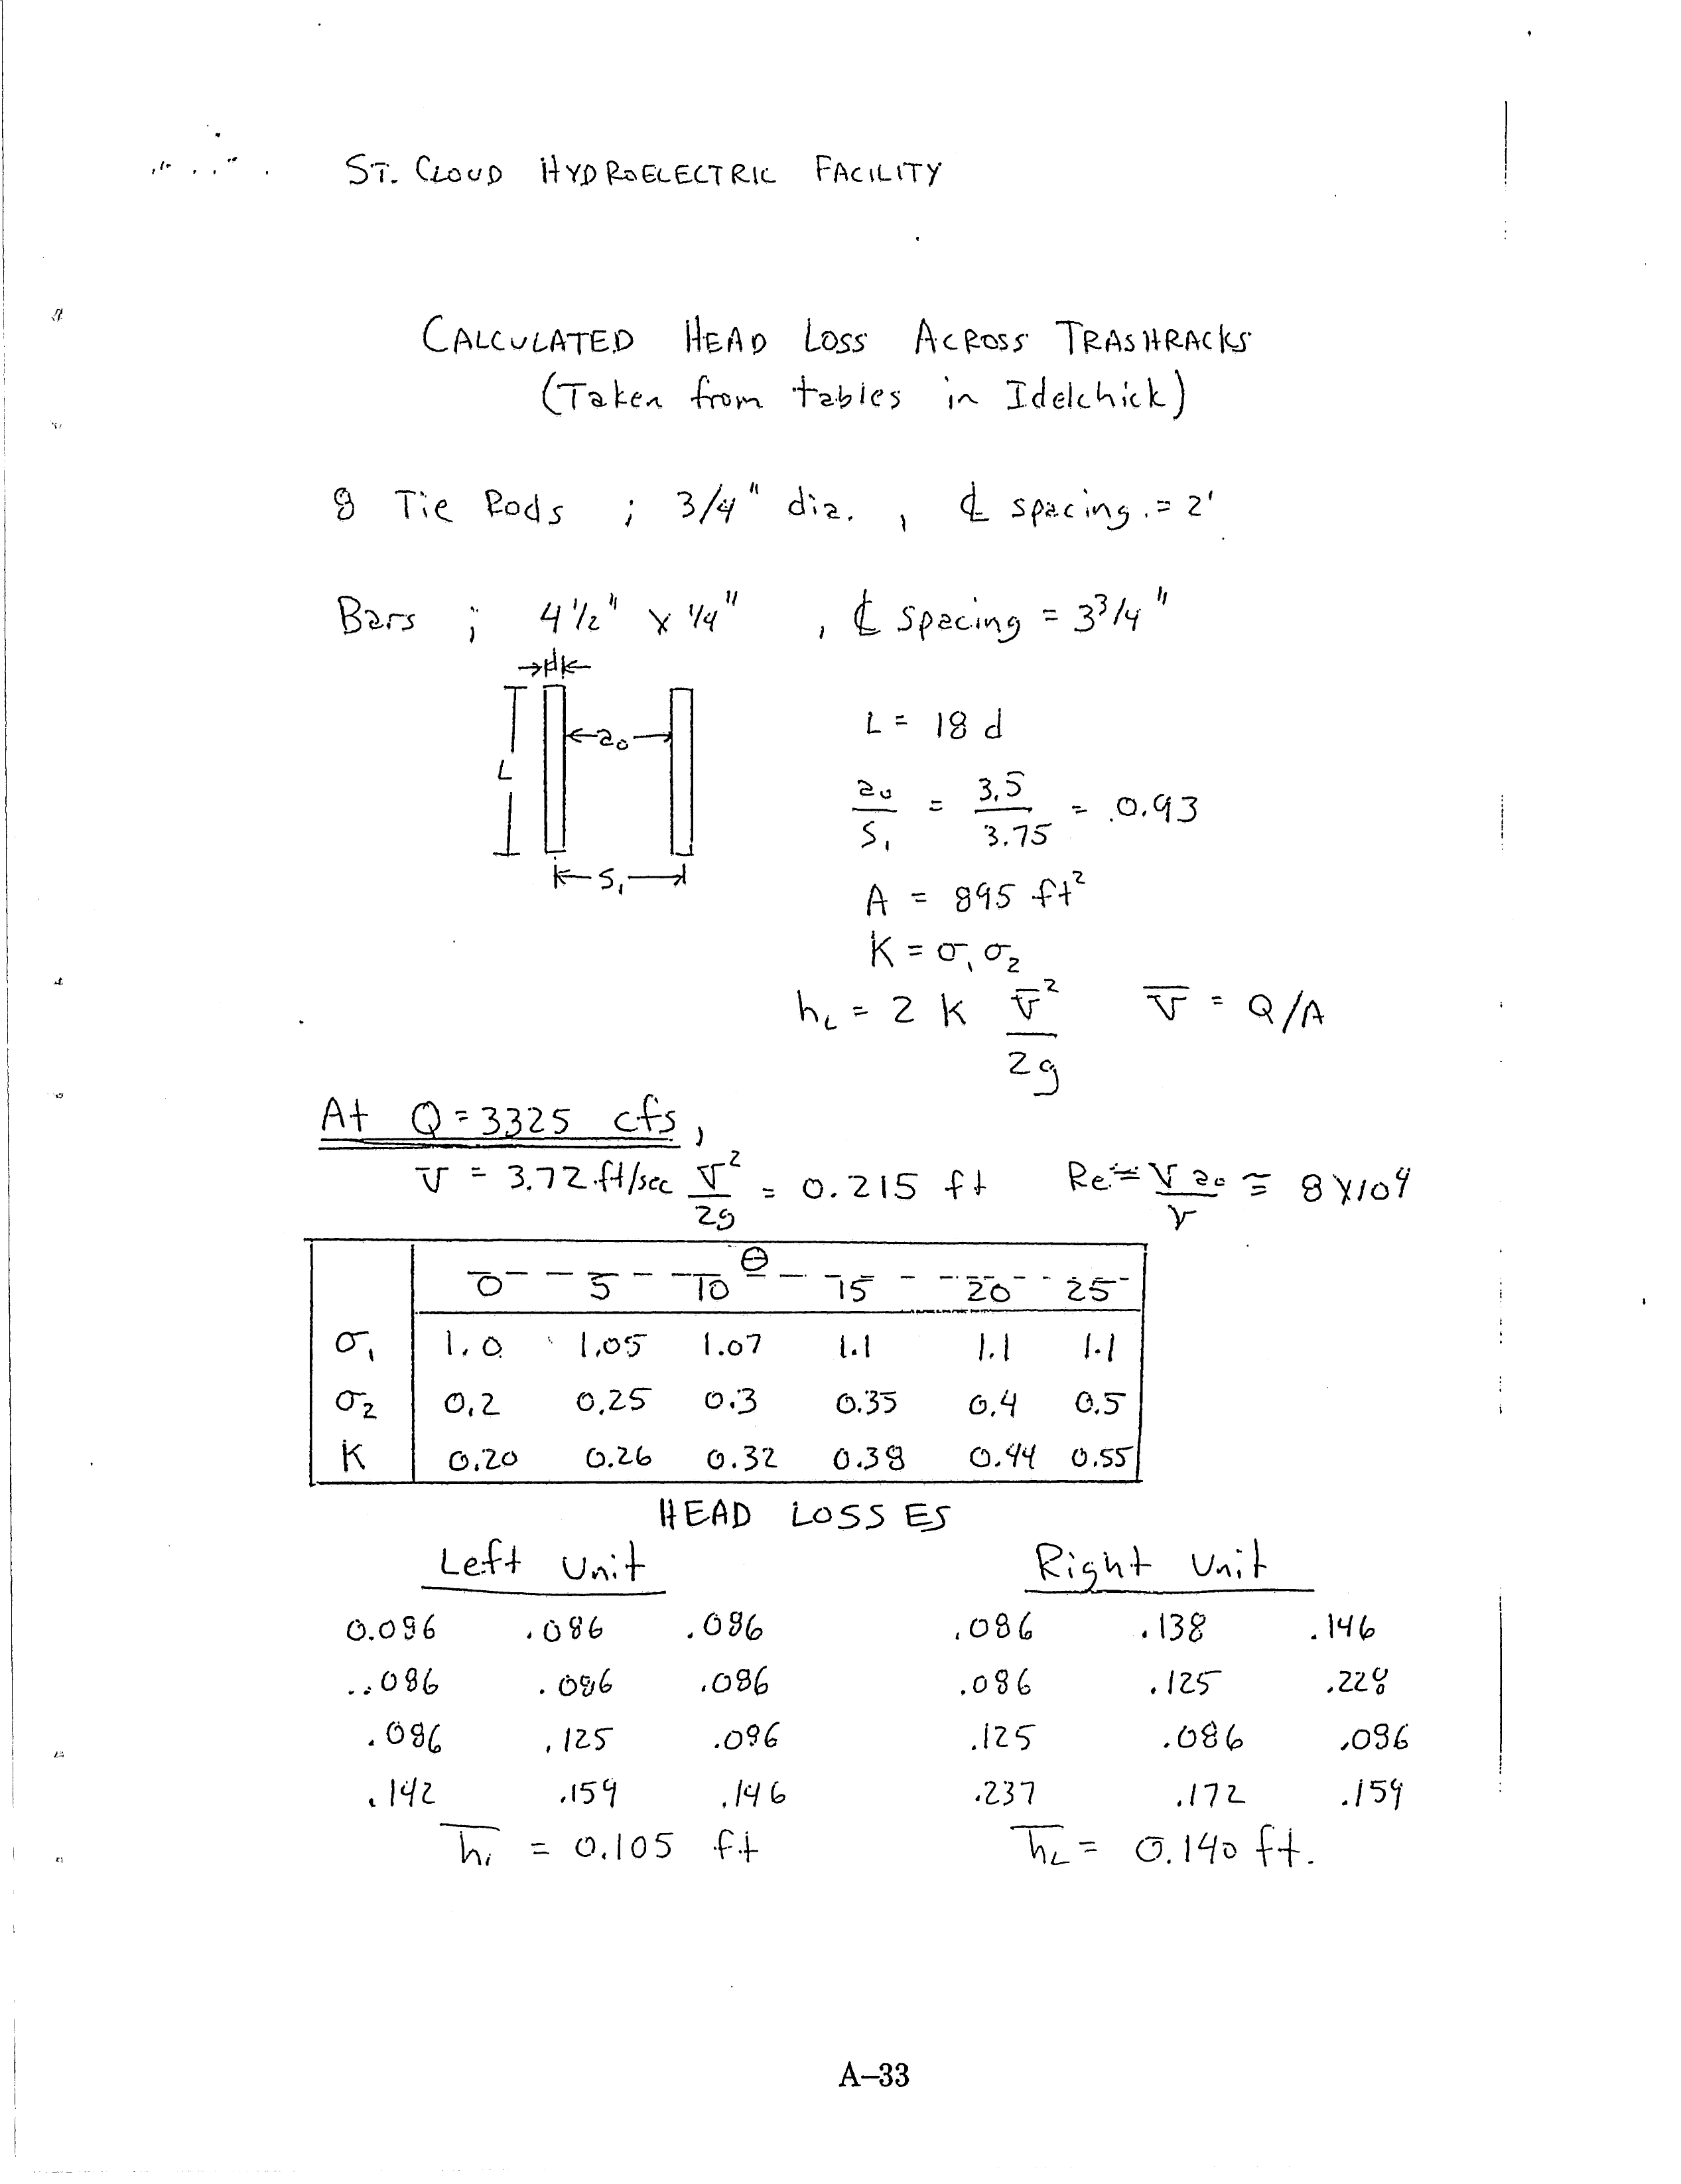 ST. CLOUD HYDROELECTRIC FACILITY
CALCULATED HEAD LOSS ACROSS TRASHRACKS
(Taken from tables in Idelchick)
8 Tie Rods ; 3/4" dia. , ℄ spacing = 2'
Bars ; 4 1/2" x 1/4" , ℄ spacing = 3 3/4"
d
L = 18 d
a₀
L
a₀/S₁ = 3.5/3.75 = 0.93
S₁
A = 895 ft²
K = σ₁ σ₂
h_L = 2 K V̄²/2g V̄ = Q/A
At Q = 3325 cfs,
V = 3.72 ft/sec V²/2g = 0.215 ft Re = V a₀/ν ≅ 8 x 10⁴
θ
0 5 10 15 20 25
σ₁ 1.0 1.05 1.07 1.1 1.1 1.1
σ₂ 0.2 0.25 0.3 0.35 0.4 0.5
K 0.20 0.26 0.32 0.38 0.44 0.55
HEAD LOSSES
Left Unit Right Unit
0.086 .086 .086 .086 .138 .146
.086 .086 .086 .086 .125 .228
.086 .125 .086 .125 .086 .086
.142 .159 .146 .237 .172 .159
h̄_L = 0.105 ft h̄_L = 0.140 ft.
A–33